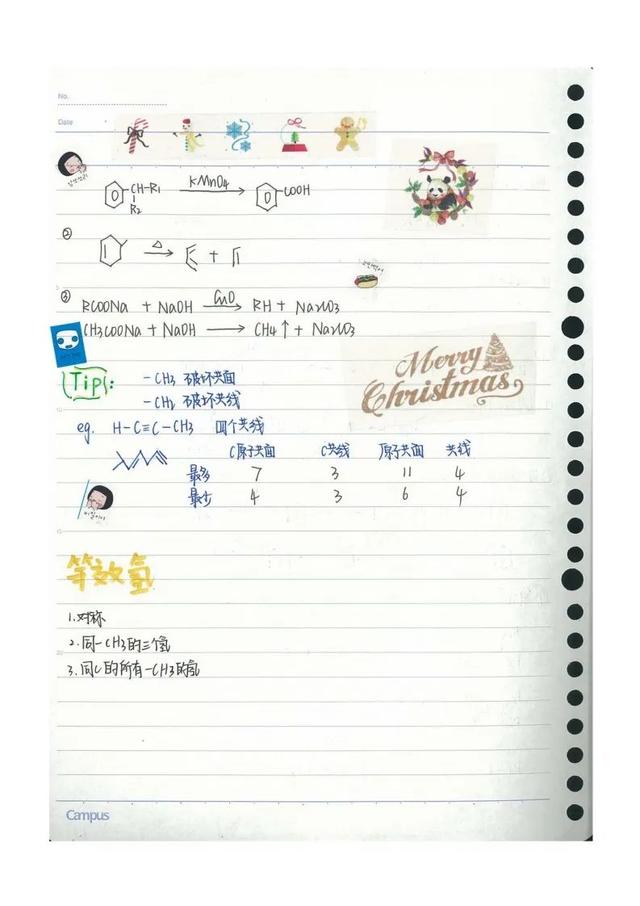 No.
Date
CH-R1 KMnO4 COOH
R2
② △ +
③ RCOONa + NaOH CaO RH + Na2CO3
CH3COONa + NaOH → CH4↑ + Na2CO3
Merry
Christmas
Tip:
-CH3 破坏共面
-CH2 破坏共线
eg. H-C≡C-CH3 四个共线
C原子共面 C共线 原子共面 共线
最多 7 3 11 4
最少 4 3 6 4
等效氢
1.对称
2.同一CH3的三个氢
3.同C的所有-CH3的氢
Campus